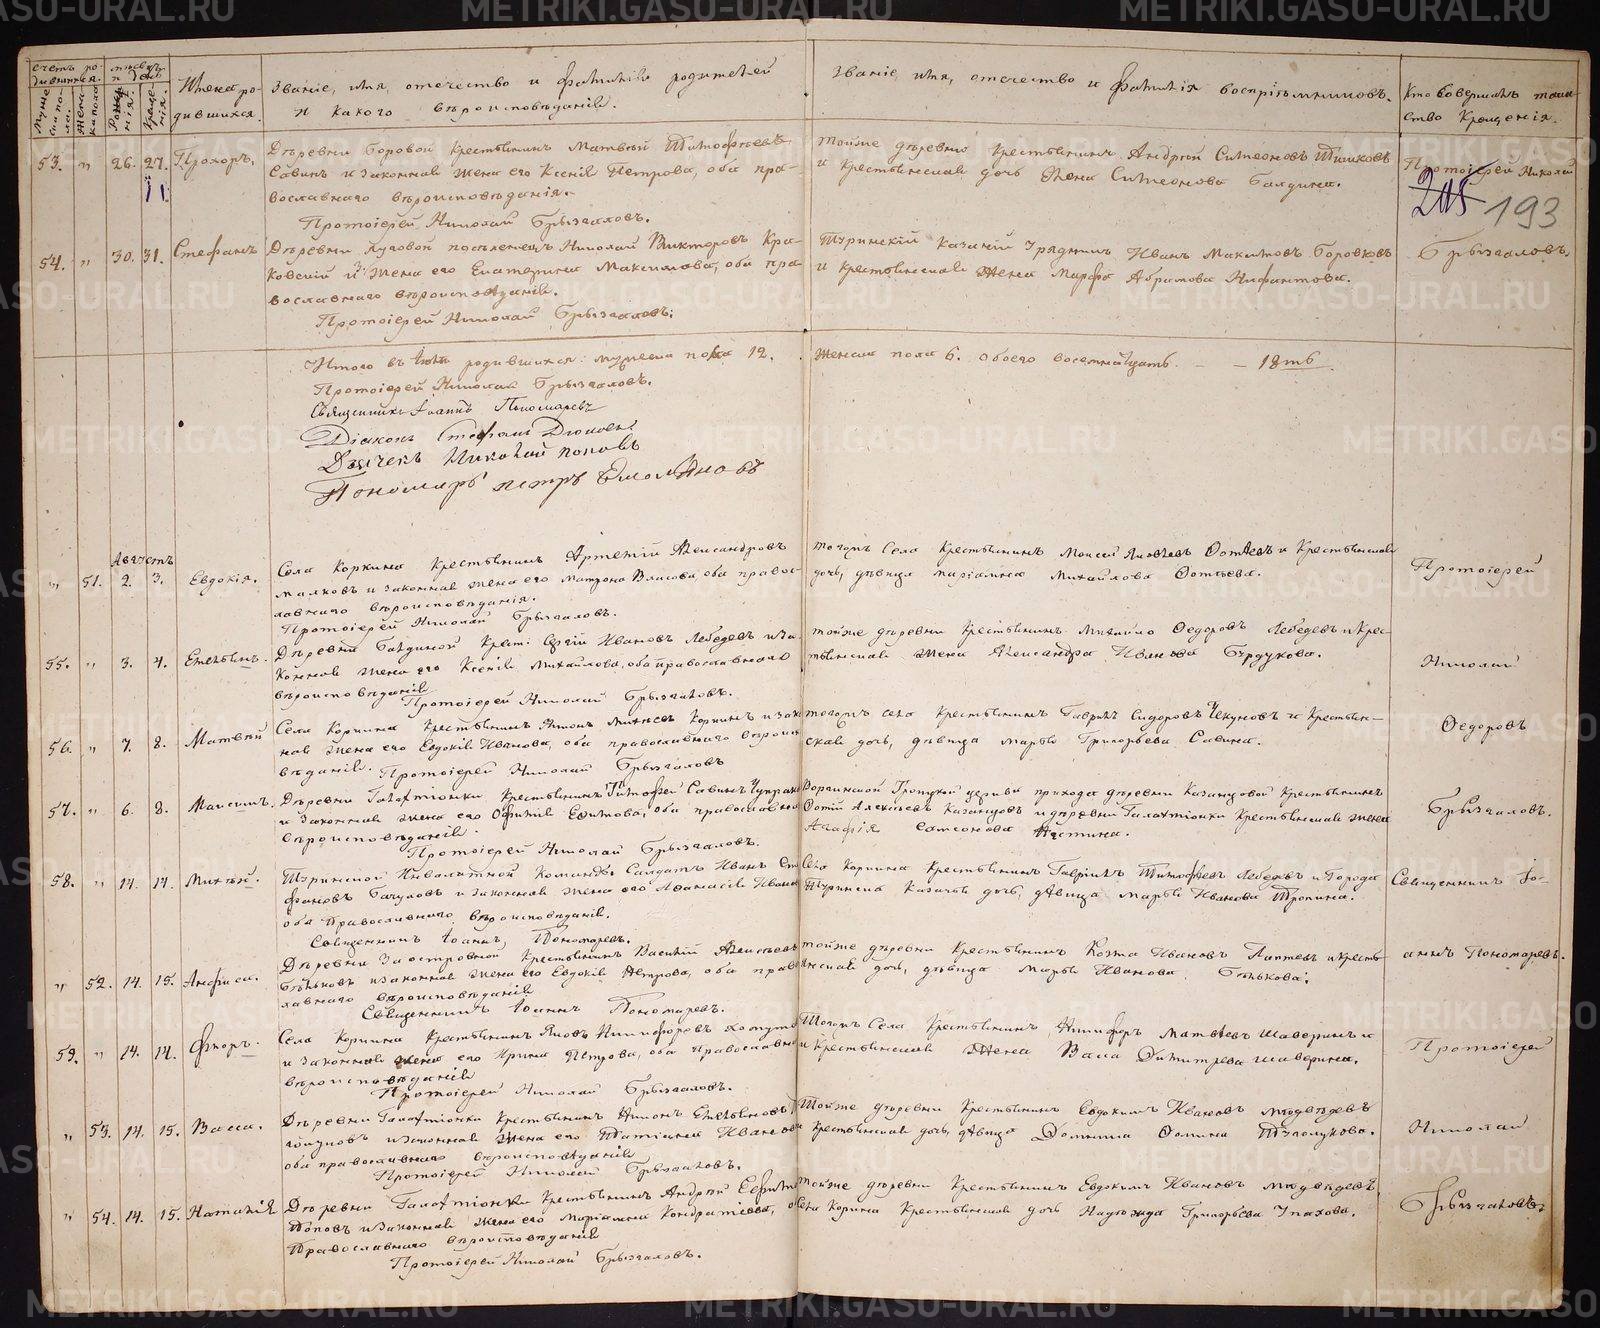 METRIKI.GASO-URAL.RU
Счетъ родившихся.
Мужеска пола.
Женска пола.
Мѣсяцъ и день
Рожденія.
Крещенія.
Имена родившихся.
Званіе, имя, отечество и фамилія родителей
и какого вѣроисповѣданія.
Званіе, имя, отечество и фамилія воспріемниковъ.
Кто совершалъ таинство Крещенія.
205 193
53. " 26. 27. Прохоръ.
11
Деревни Боровой крестьянинъ Матвей Тимофѣевъ
Савинъ и законная жена его Ксенія Петрова, оба пра-
вославнаго вѣроисповѣданія.
Протоіерей Николай Брызгаловъ.
тойже деревни крестьянинъ Андрей Симеоновъ
и крестьянская дочь Симеонова Балдина.
Протоіерей Николай
54. " 30. 31. Стефанъ
Деревни Луговой поселенецъ Николай Викторовъ Кра-
ковскій и жена его Екатерина Максимова, оба пра-
вославнаго вѣроисповѣданія.
Протоіерей Николай Брызгаловъ.
Туринскій казачій урядникъ Иванъ Максимовъ Боровковъ
и крестьянская жена Марфа Абрамова Нифантова.
Брызгаловъ.
Итого въ родившихся: мужеска пола 12. женска пола 6. обоего восемнадцать. - - 18ть.
Протоіерей Николай Брызгаловъ.
Священникъ Іоаннъ Пономаревъ
Діаконъ Стефанъ
Дьячекъ Николай Поповъ
Пономарь Петръ Емельяновъ
Августъ
" 51. 2. 3. Евдокія.
Села Коркина крестьянинъ Артемій Александровъ
Малковъ и законная жена его Матрона Власова, оба правос-
лавнаго вѣроисповѣданія.
Протоіерей Николай Брызгаловъ.
тогожъ села крестьянинъ Моисей Яковлевъ Фотѣевъ и крестьянская
дочь, дѣвица Маріамна Михайлова Фотѣева.
Протоіерей
55. " 3. 4. Емельянъ.
Деревни Балдиной крест: Сергій Ивановъ Лебедевъ и за-
конная жена его Ксенія Михайлова, оба православнаго
вѣроисповѣданія
Протоіерей Николай Брызгаловъ.
тойже деревни крестьянинъ Михайло Федоровъ Лебедевъ и крес-
тьянская жена Александра Иванова Бурдукова.
Николай
56. " 7. 8. Матвѣй
Села Коркина крестьянинъ Коркинъ и закон
ная жена его Евдокія Иванова, оба православнаго вѣроиспо
вѣданія. Протоіерей Николай Брызгаловъ
тогожъ села крестьянинъ Гаврилъ Сидоровъ Чекуновъ и крестьян-
ская дочь, дѣвица Марья Григорьева Савина.
Федоровъ
57. " 6. 8. Максимъ.
Деревни Галактіонки крестьянинъ Тимофей Савинъ
и законная жена его Ефимова, оба православнаго
вѣроисповѣданія.
Протоіерей Николай Брызгаловъ.
Троицкой церкви прихода деревни Казанцовой крестьянинъ
Фотій Алексѣевъ Казанцовъ и деревни Галактіонки крестьянская жена
Агафія Самсонова
Брызгаловъ.
58. " 14. 14. Михей.
Туринской Инвалидной Команды Солдатъ Иванъ Сте
фановъ Бачуловъ и законная жена его Афанасія Иванова
оба православнаго вѣроисповѣданія.
Священникъ Іоаннъ Пономаревъ.
Села Коркина крестьянинъ Гавріилъ Тимофѣевъ Лебедевъ и города
Туринска казачья дочь, дѣвица Марья Иванова Тропина.
Священникъ Іо-
" 52. 14. 15. Анфиса.
Деревни Заостровной крестьянинъ Василій Алексѣевъ
Бѣльковъ и законная жена его Евдокія Петрова, оба право
лавнаго вѣроисповѣданія
Священникъ Іоаннъ Пономаревъ.
тойже деревни крестьянинъ Козма Ивановъ Лаптевъ и кресть
янская дочь, дѣвица Марья Иванова Бѣлькова.
аннъ Пономаревъ.
59. " 14. 14. Флоръ.
Села Коркина крестьянинъ Яковъ Никифоровъ
и законная жена его Ирина Петрова, оба православна
вѣроисповѣданія
Протоіерей Николай Брызгаловъ.
Тогожъ Села крестьянинъ Никифоръ Матвѣевъ Шаверинъ
и крестьянская жена Васса Димитрева Шаверина.
Протоіерей
" 53. 14. 15. Васса.
Деревни Галактіонки крестьянинъ Емельяновъ
и законная жена его Татіана Иванова
оба православнаго вѣроисповѣданія
Протоіерей Николай Брызгаловъ.
Тойже деревни крестьянинъ Евдокимъ Ивановъ Медведевъ
крестьянская дочь, дѣвица Домника Фомина
Николай
" 54. 14. 15. Наталія
Деревни Галактіонки крестьянинъ Андрей Ефимо
Поповъ и законная жена его Маріамна Кондратьева, о
Православнаго вѣроисповѣданія
Протоіерей Николай Брызгаловъ.
тойже деревни крестьянинъ Евдокимъ Ивановъ Медведевъ,
села Коркина крестьянская дочь Надежда Григорьева Упахова.
Брызгаловъ.